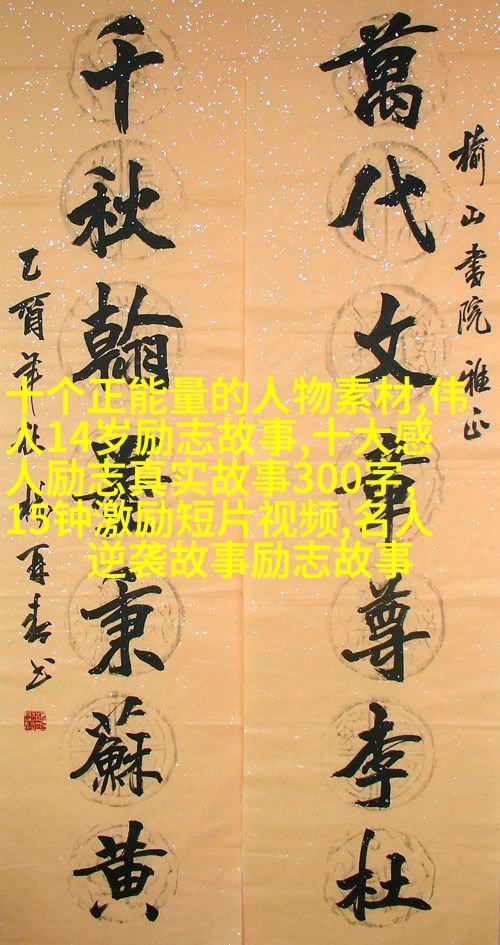 榆山書院雅正
萬代文章尊李杜
千秋翰墨秉蘇黄
乙酉年
十个正能量的人物素材,伟
人14岁励志故事,十大感
人励志真实故事300字,
15钟激励短片视频,名人
逆袭故事励志故事